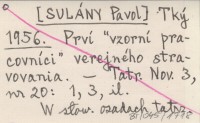 [SULÁNY Pavol] Tký
1956. Prví "vzorní pra-
covníci" verejného stra-
vovania. – Tatr. Nov. 3,
nr 20: 1, 3, il.
W słow. osadach tatrz.